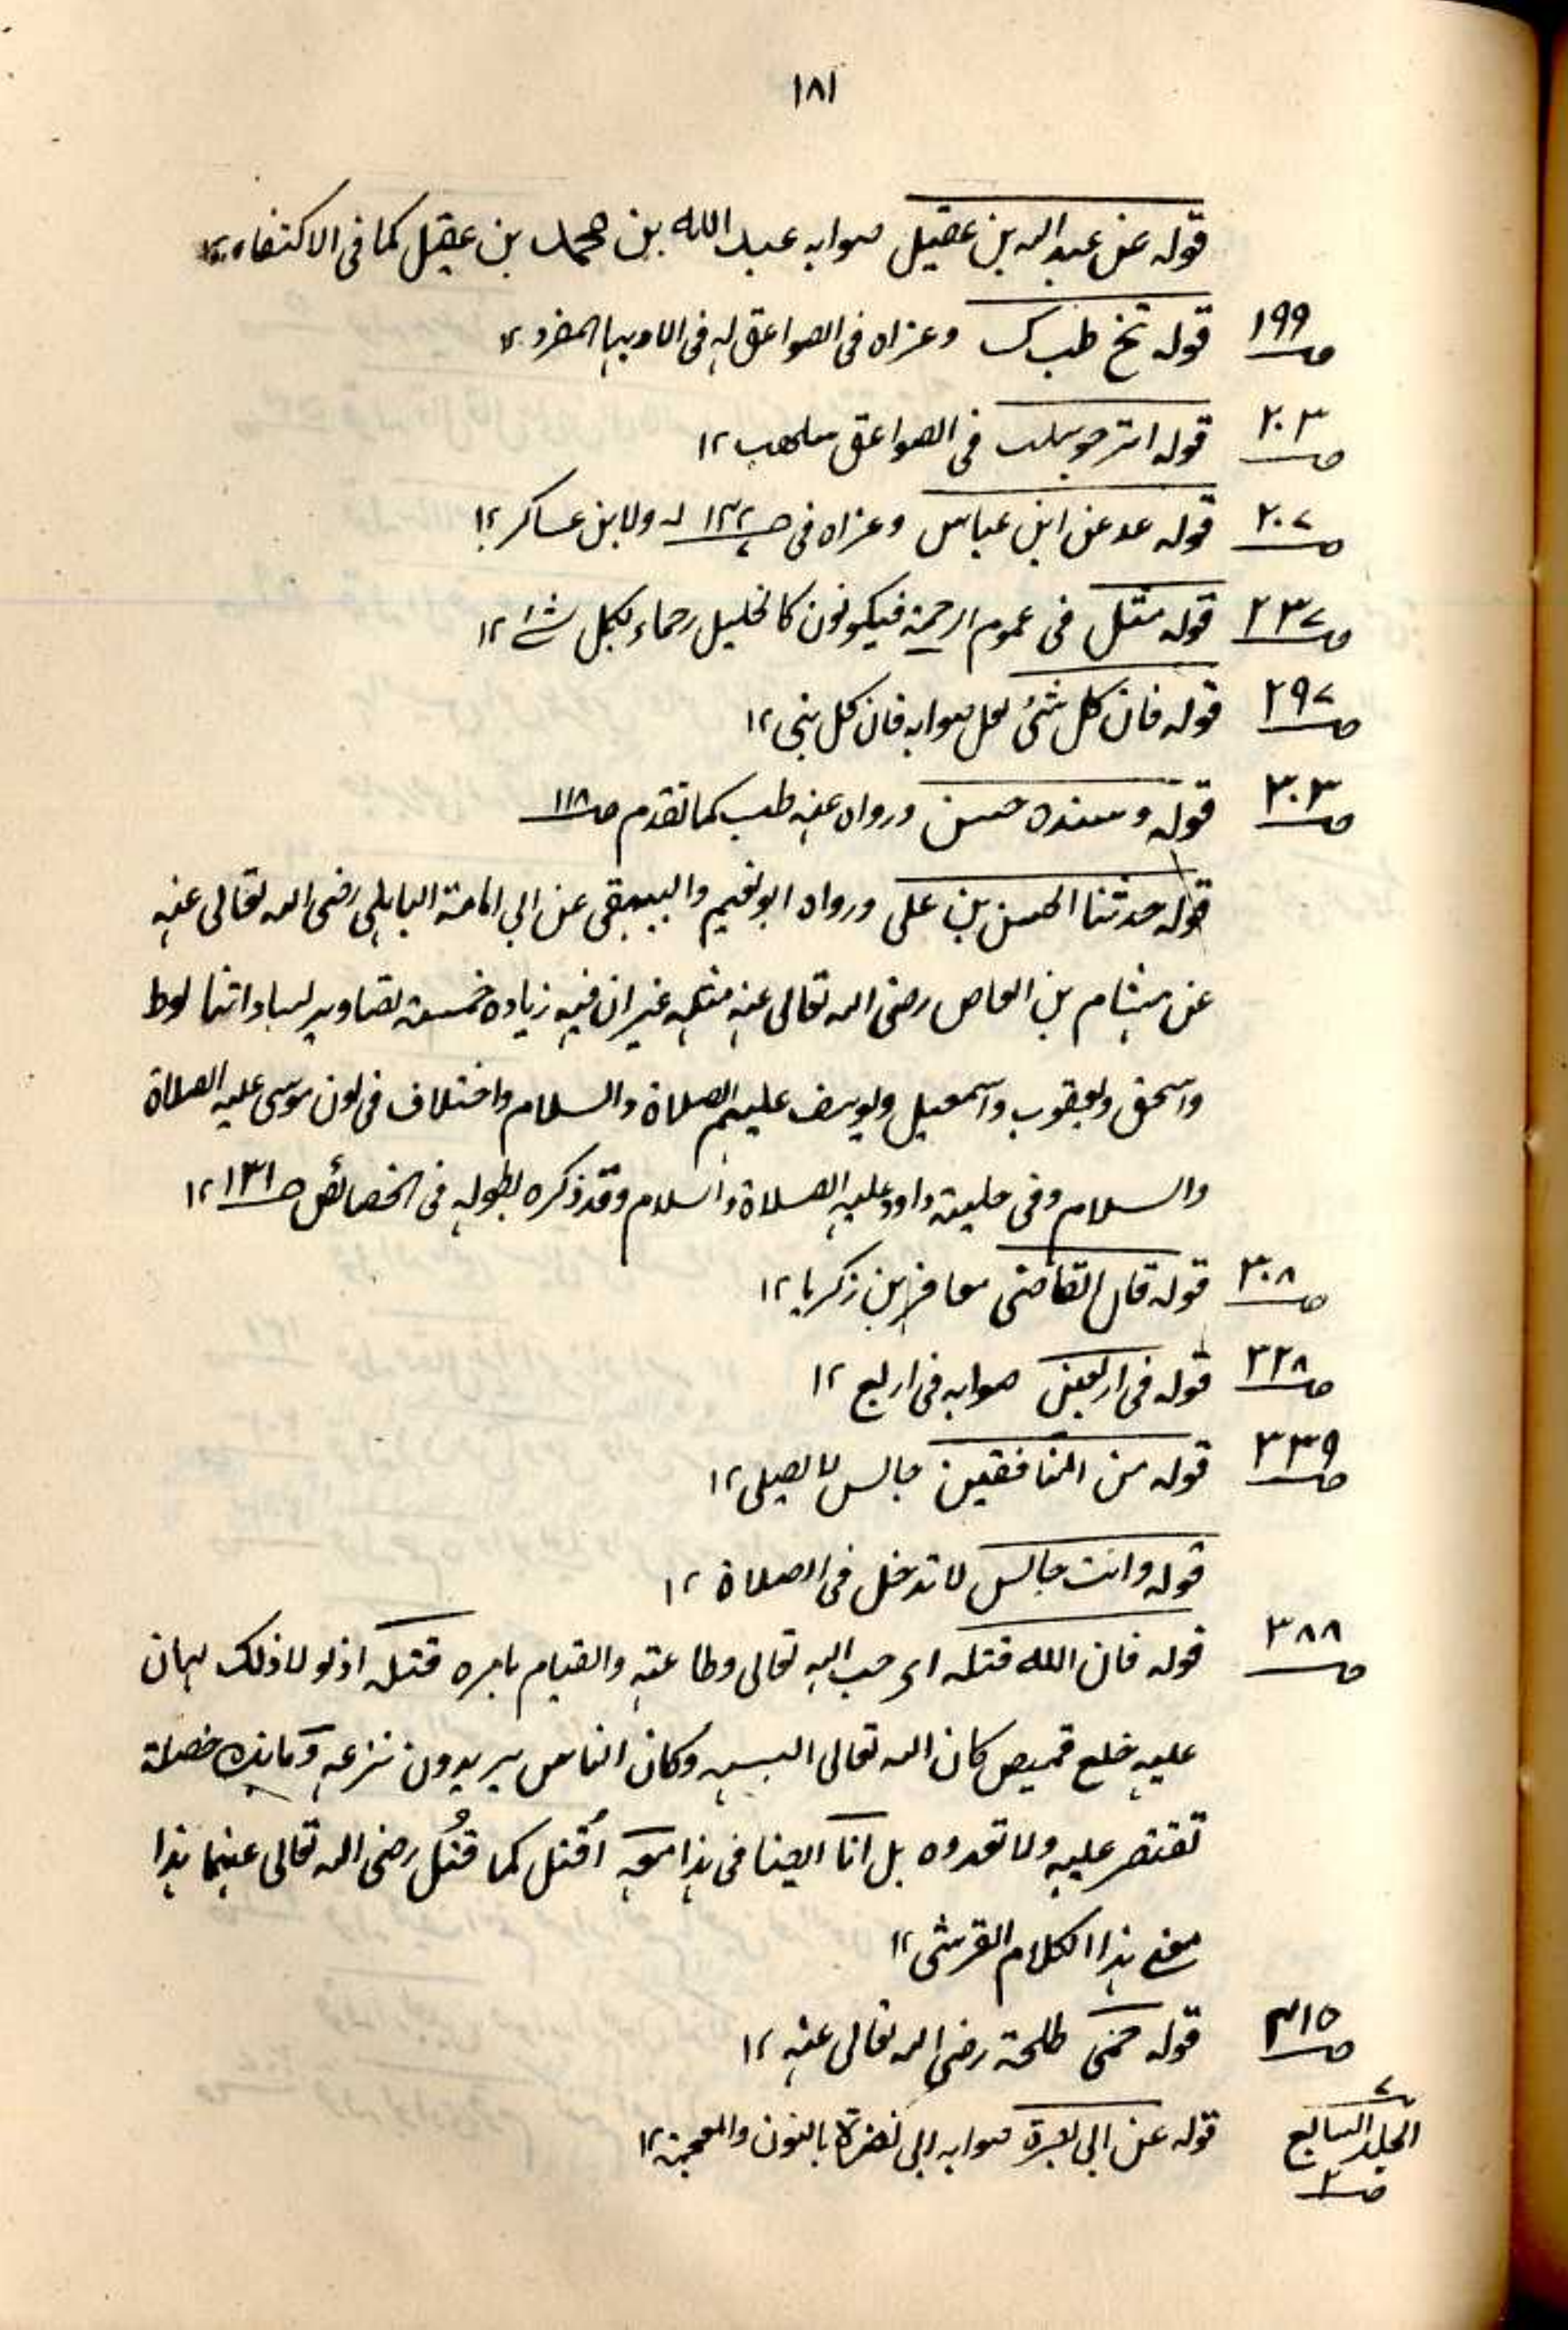 ١٨١
قوله عن عبد الله بن عقيل صوابه عبد الله بن محمد بن عقيل كما فى الاكتفاء ١٢
ص١٩٩ قوله تخ طب ك وعزاه فى الصواعق له فى الادب المفرد ١٢
ص٢٠٣ قوله فى الصواعق ١٢
ص٢٠٧ قوله عد عن ابن عباس وعزاه فى ص١٣٢ له ولابن عساكر ١٢
ص٢٣٧ قوله مثل فى عموم الرحمة فيكونون كالخليل رحماء لكل شئ ١٢
ص٢٩٧ قوله فان كل شئ لعل صوابه فان كل بنى ١٢
ص٣٠٣ قوله وسنده حسن ورواه عنه طب كما تقدم ص١١٨
قوله حدثنا الحسن بن على ورواه ابو نعيم والبيهقى عن ابى امامة الباهلى رضى الله تعالى عنه
عن هشام بن العاص رضى الله تعالى عنه مثله غير ان فيه زيادة خمسة تصاوير لساداتنا لوط
واسحق ويعقوب واسمعيل ويوسف عليهم الصلاة والسلام واختلاف فى لون موسى عليه الصلاة
والسلام وفى حلية داود عليه الصلاة والسلام وقد ذكره بطوله فى الخصائص ص١٣١ ١٢
ص٣٠٨ قوله قال القاضى معافر بن زكريا ١٢
ص٣٢٨ قوله فى اربعين صوابه فى اربع ١٢
ص٣٣٩ قوله من المنافقين جالس لا يصلى ١٢
قوله وانت جالس لا تدخل فى الصلاة ١٢
ص٣٨٨ قوله فان الله قتله اى حب الله تعالى وطاعته والقيام بامره قتله اذ لو لا ذلك لهان
عليه خلع قميص كان الله تعالى البسه وكان الناس يريدون نزعه وما هذه خصلة
تقتصر عليه ولا تعدوه بل انا ايضا فى هذا معه اُقتل كما قُتل رضى الله تعالى عنهما هذا
معنى هذا الكلام القرشى ١٢
ص٤١٥ قوله حمى طلحة رضى الله تعالى عنه ١٢
الجلد السابع ٧ ص٢ قوله عن ابى بصرة صوابه ابى نضرة بالنون والمعجمة ١٢